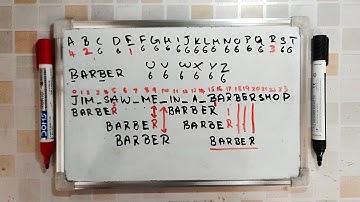 A B C D E F G H I J K L M N O P Q R S T
4 2 6 6 1 6 6 6 6 6 6 6 6 6 6 6 6 3 6 6
U V W X Y Z
BARBER 6 6 6 6 6 6
0 1 2 3 4 5 6 7 8 9 10 11 12 13 14 15 16 17 18 19 20 21 22 23
JIM_SAW_ME_IN_A_BARBERSHOP
BARBER BARBER
BARBER BARBER
BARBER BARBER